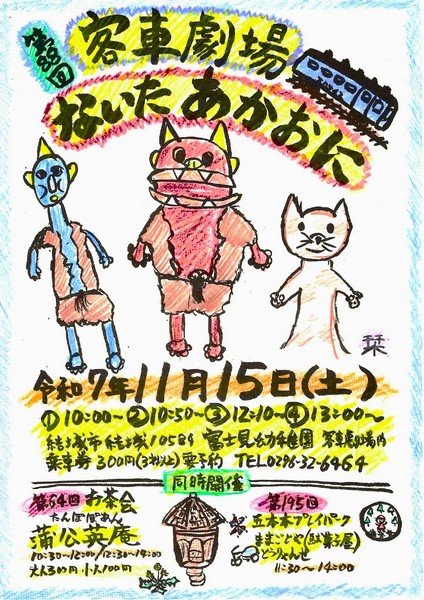 第88回
客車劇場
ないたあかおに
栞
令和7年11月15日(土)
①10:00〜②10:50〜③12:10〜④13:00〜
結城市結城10584 富士見幼稚園 客車劇場内
乗車券300円(3才以上)要予約 TEL0296-32-6464
同時開催
第64回 お茶会
たんぽぽあん
蒲公英庵
10:30〜12:00/12:30〜14:00
大人300円 小人100円
第195回
立木木プレイパーク
ままごとや(駄菓子屋)
どうらんせ
11:30〜14:00